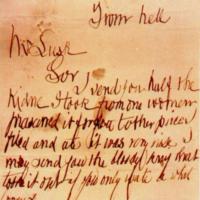 From hell
Mr Lusk
Sor
I send you half the
Kidne I took from one women
prasarved it for you tother piece
fried and ate it was very nise I
may send you the bloody knif that
took it out if you only wate a whil